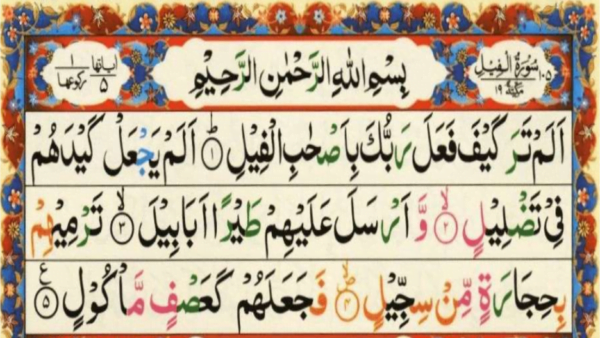 سُوْرَةُ الْفِيْلِ ١٠٥
مَكِّيَّةٌ ١٩
بِسْمِ اللهِ الرَّحْمٰنِ الرَّحِيْمِ
اٰيَاتُهَا ٥ رُكُوْعُهَا ١
اَلَمْ تَرَ كَيْفَ فَعَلَ رَبُّكَ بِاَصْحٰبِ الْفِيْلِ ؕ﴿١﴾ اَلَمْ يَجْعَلْ كَيْدَهُمْ
فِيْ تَضْلِيْلٍ ۙ﴿٢﴾ وَّ اَرْسَلَ عَلَيْهِمْ طَيْرًا اَبَابِيْلَ ۙ﴿٣﴾ تَرْمِيْهِمْ
بِحِجَارَةٍ مِّنْ سِجِّيْلٍ ۪ۙ﴿٤﴾ فَجَعَلَهُمْ كَعَصْفٍ مَّاْكُوْلٍ ﴿٥﴾ ع